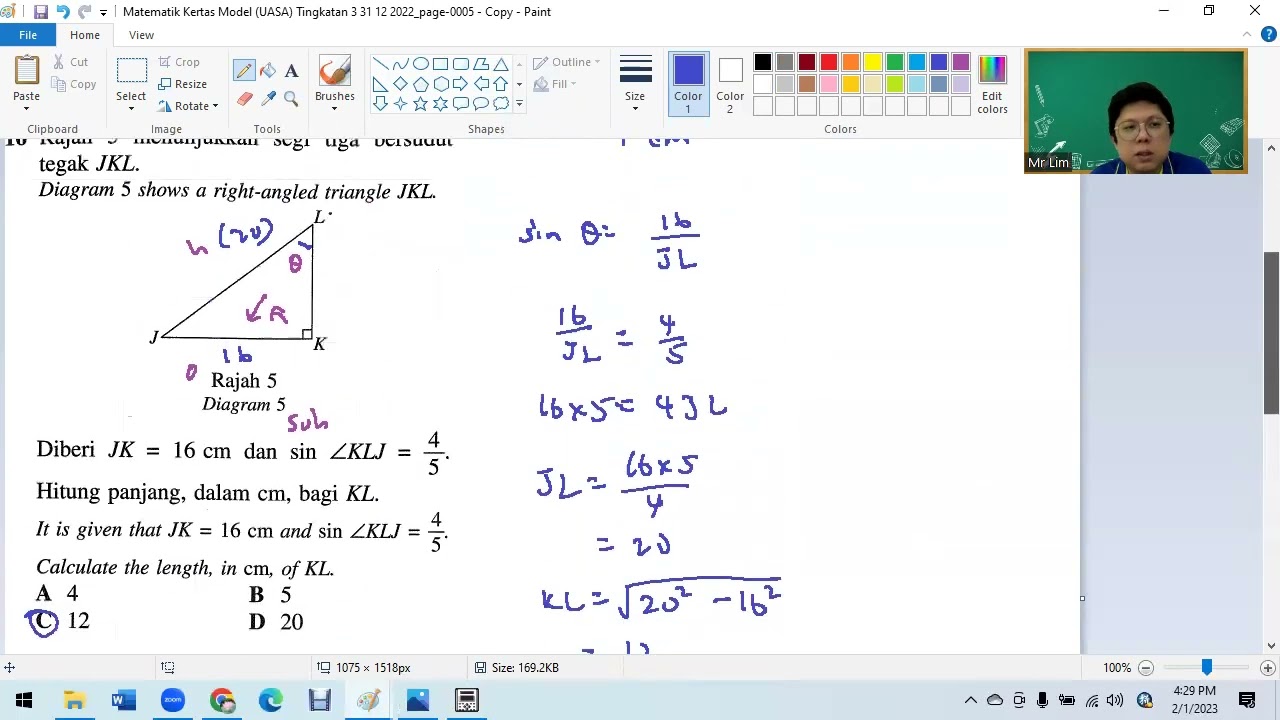 Matematik Kertas Model (UASA) Tingkatan 3 31 12 2022_page-0005 - Copy - Paint
File
Home
View
Paste
Cut
Copy
Clipboard
Select
Crop
Resize
Rotate
Image
A
Tools
Brushes
Shapes
Outline
Fill
Size
Color 1
Color 2
Edit colors
Colors
Mr Lim
10 Rajah 5 menunjukkan segi tiga bersudut
tegak JKL.
Diagram 5 shows a right-angled triangle JKL.
L
h (20)
θ
R
J
K
16
o
Rajah 5
Diagram 5
soh
Diberi JK = 16 cm dan sin ∠KLJ = 4/5.
Hitung panjang, dalam cm, bagi KL.
It is given that JK = 16 cm and sin ∠KLJ = 4/5.
Calculate the length, in cm, of KL.
A 4
B 5
C 12
D 20
cm
sin θ = 16/JL
16/JL = 4/5
16×5 = 4JL
JL = 16×5/4
= 20
KL = √20² - 16²
= 12
1075 × 1518px
Size: 169.2KB
100%
zoom
4:29 PM
2/1/2023